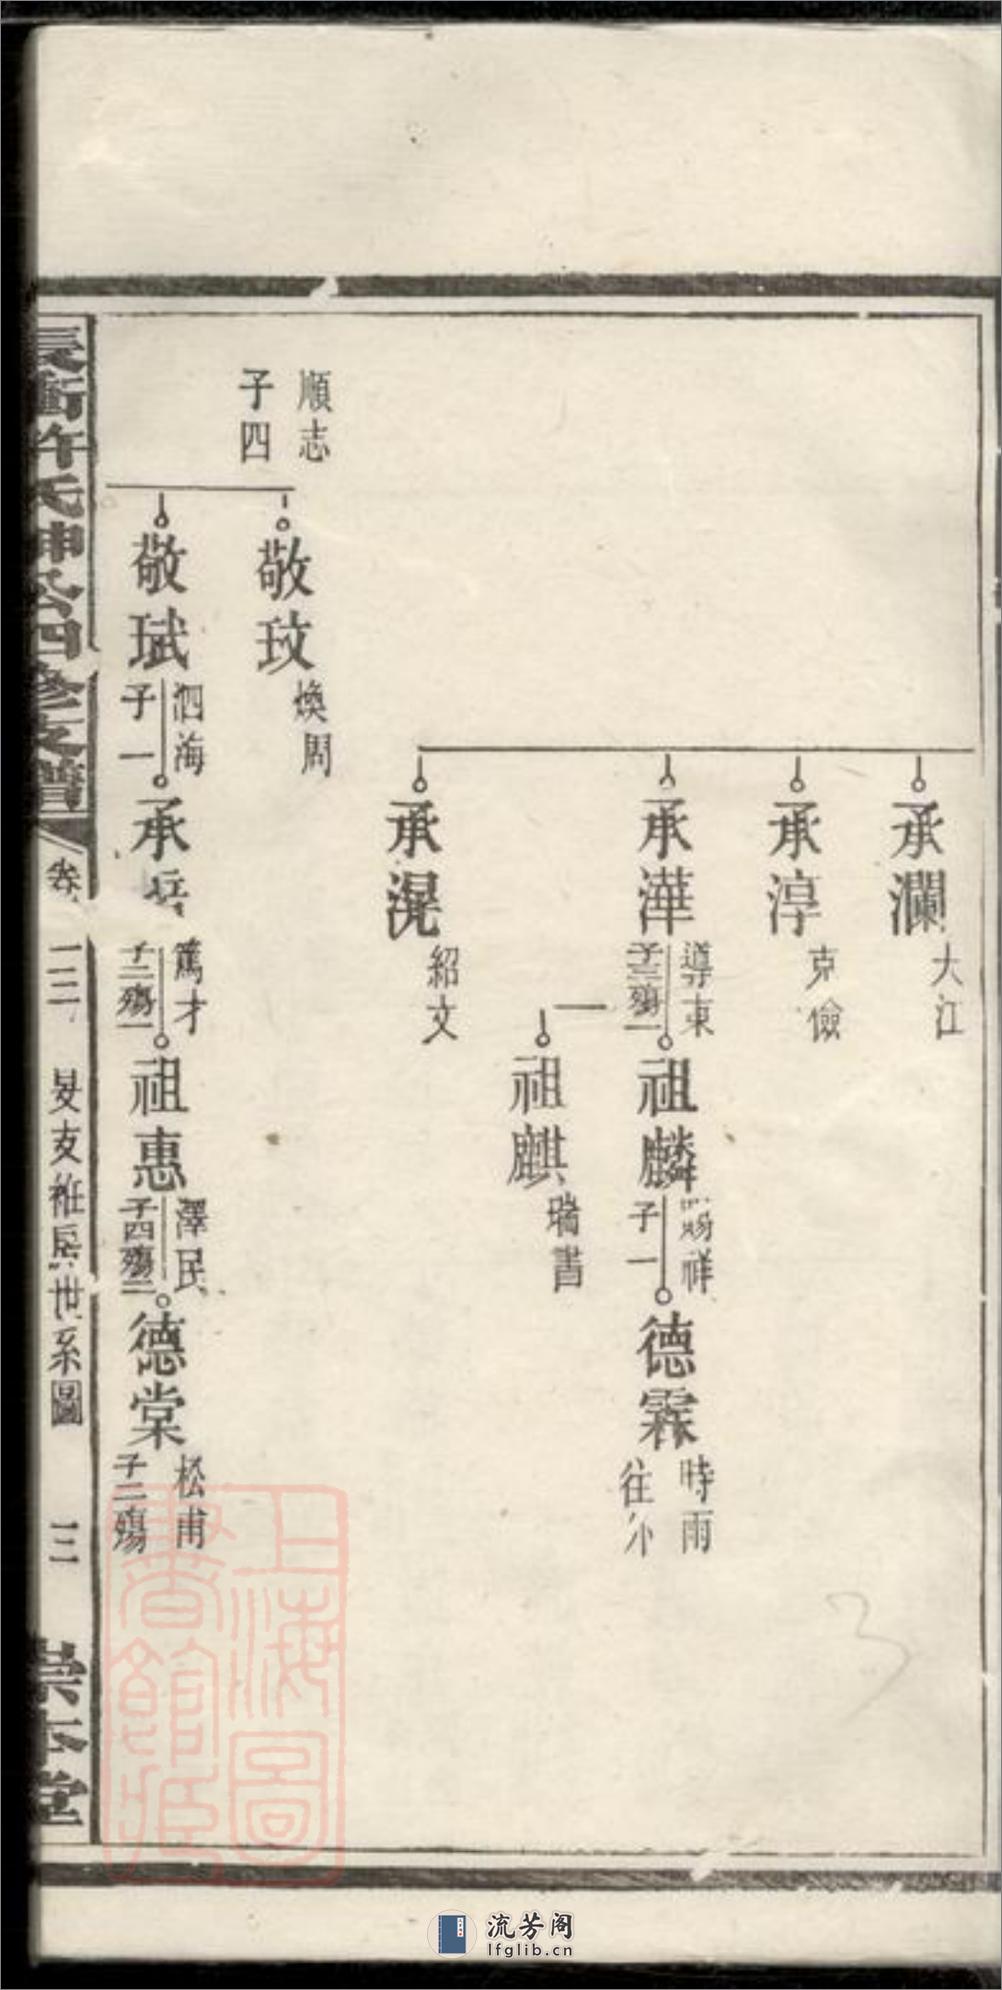 承瀾 大江
承淳 克儉
承澕 導東 子三殤一
祖麟 賜祥 子一
德霖 時雨 往外
祖麒 瑞書
承滉 紹文
順志 子四
敬玟 煥周
敬珷 泗海 子一
承 篤才 子二殤一
祖惠 澤民 子四殤二
德棠 松甫 子二殤
衝許氏紳公四修支譜
卷三 支 世系圖 三 崇本堂
上海圖書館藏
流芳阁
lfglib.cn